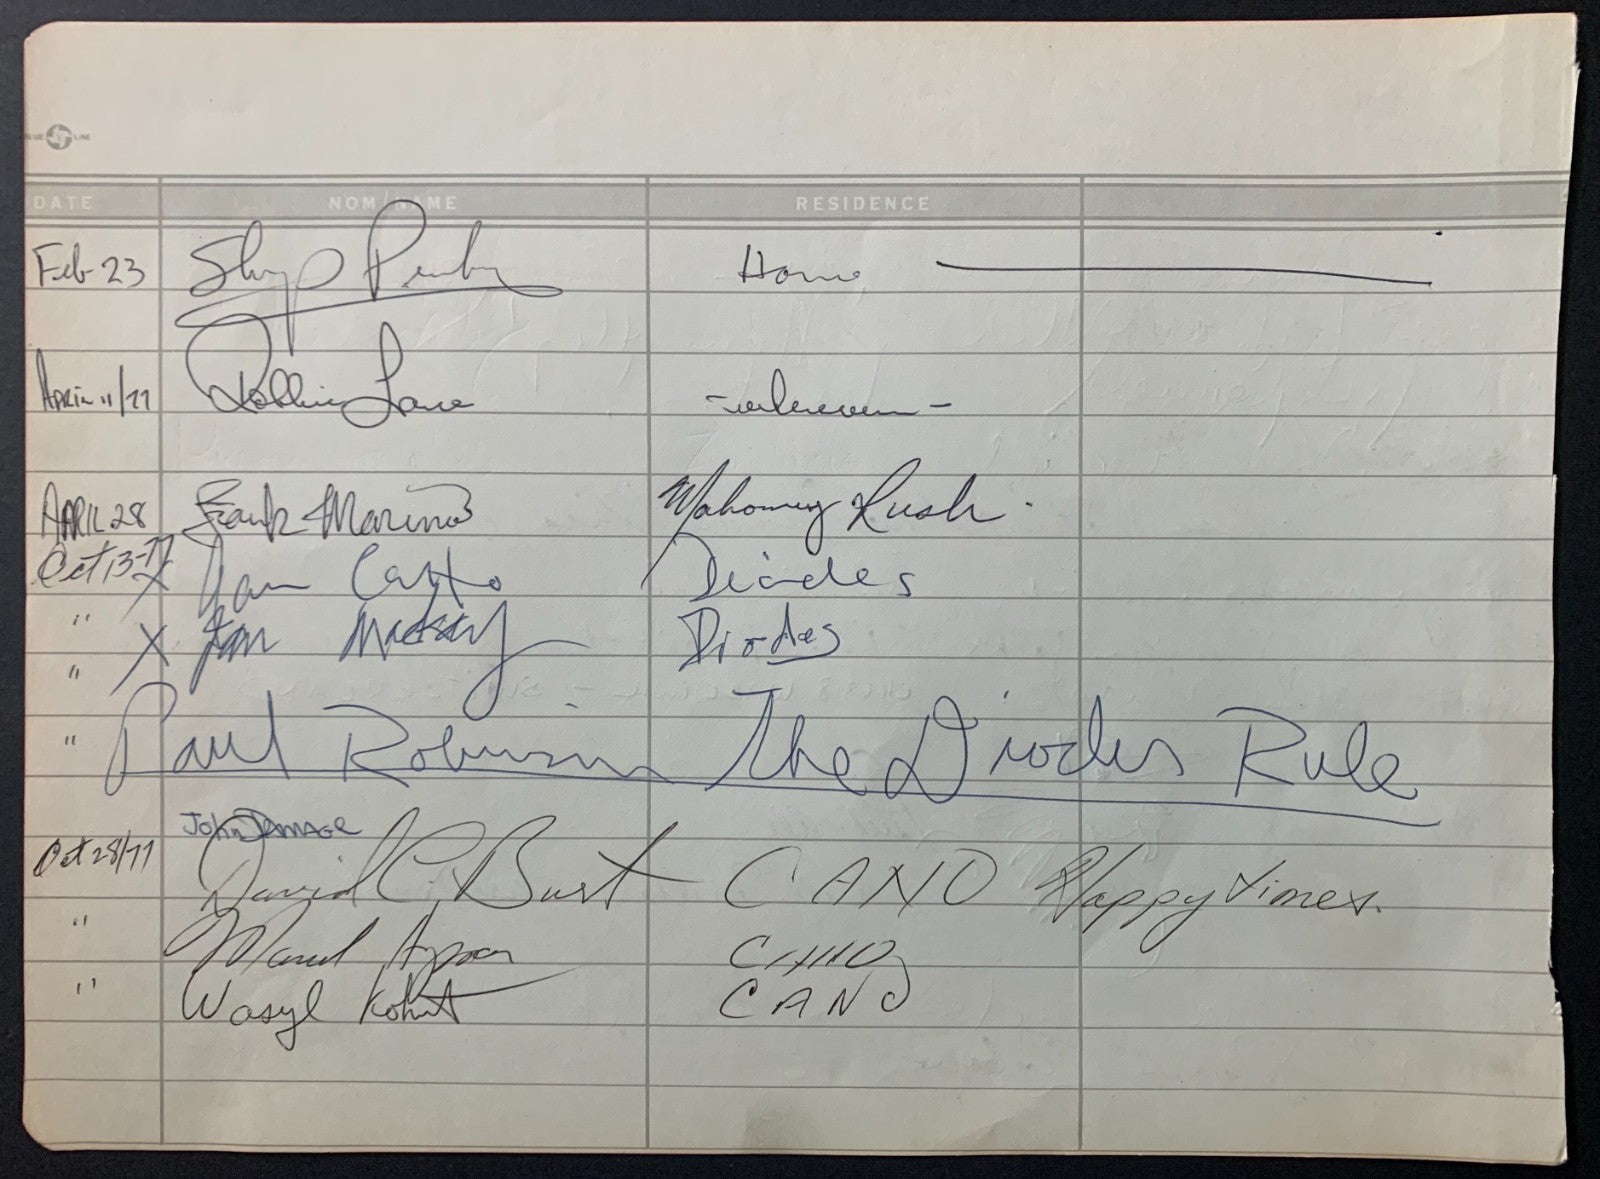 BLUE LINE
DATE NOM/NAME RESIDENCE
Feb 23 Home
APRIL 11/77 Robbin Lane - unknown -
APRIL 28 Frank Marino Mahoney Rush.
Oct 13-77 X Diodes
" X Ian Mackay Diodes
"
" Paul Robinson The Diodes Rule
John DAMAGE
Oct 28/77 David C. Burt CANO Happy times.
" Marcel Aymar CANO
" Wasyl Kohut CANO